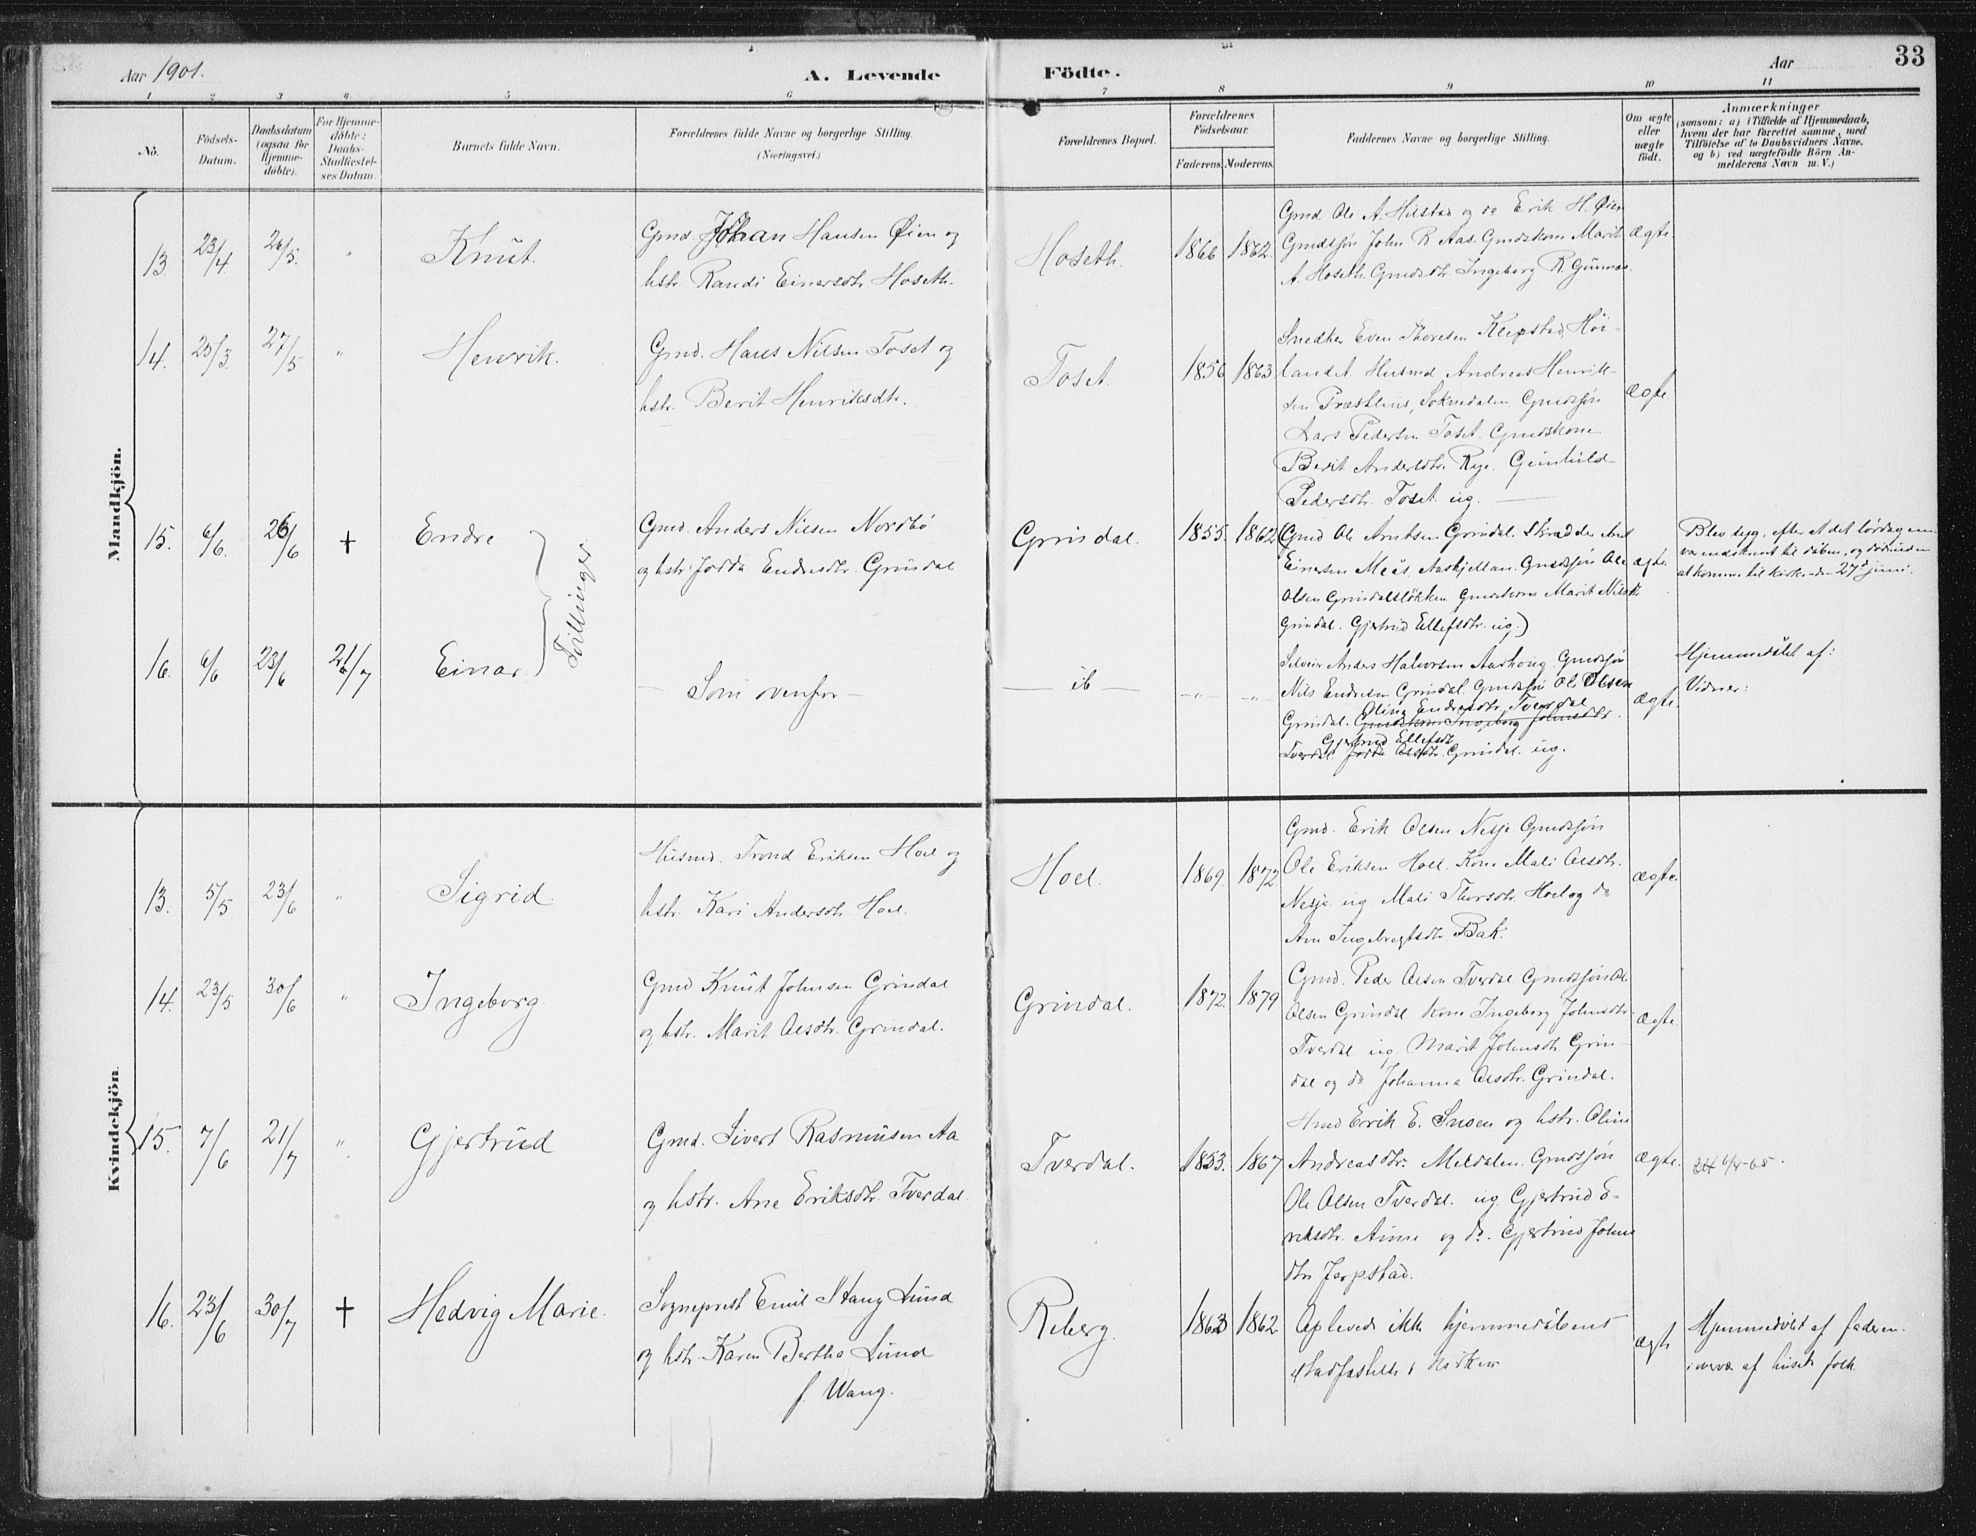 Aar 1901.
A. Levende
Födte.
Aar
33
1 2 3 4 5 6 7 8 9 10 11
No.
Födsels-
Datum.
Daabsdatum
(ogsaa for
Hjemme-
döbte).
For Hjemme-
döbte:
Daabs-
Stadfæstel-
ses Datum.
Barnets fulde Navn.
Forældrenes fulde Navne og borgerlige Stilling.
(Næringsvei.)
Forældrenes Bopæl.
Forældrenes
Födselsaar.
Faderens.
Moderens.
Faddernes Navne og borgerlige Stilling.
Om ægte
eller
uægte
födt.
Anmærkninger
(saasom: a) i Tilfælde af Hjemmedaab,
hvem der har forrettet samme, med
Tilföielse af to Daabsvidners Navne.
og b) ved uægtefödte Börn An-
melderens Navn m. V.)
Mandkjön.
13. 23/4 26/5. " Knut.
Gmd. Johan Hansen Øien og
hstr. Randi Einersdtr Hoseth.
Hoseth. 1866 1862.
Gmd. Ole A. Hilstad og do Erik H. Øien
Gmdssön John R. Aas. Gmdskone Marit
A. Hoseth. Gmdsdtr. Ingeborg R. Gunnes.
Ægte
14. 25/3. 27/5 " Henrik.
Gmd. Hans Nilsen Toset og
hstr. Berit Henriksdtr.
Toset. 1856 1863
Smedther Even Thoresen Klepstad, Höi-
landet Husmd Andreas Henrik-
sen Præsthus, Soknedalen Gmdssön
Lars Pedersen Toset. Gmdskone
Berit Andersdtr. Rye. Gunhild
Pedersdtr. Toset ug.
Ægte.
15. 6/6. 26/6 + Endre
Tvillinger
Gmd. Anders Nilsen Nordbö
og hstr. Jodda Endresdtr. Grindal
Grindal. 1855. 1862
(Gmd Ole Arntsen Grindal. Skrædder Arnt
Einersen Meås, Aaskjellan. Gmdssön Ole
Olsen Grindalslökken Gmdskone Marit Nilsdtr
Grindal. Gjertrud Ellefsdtr. ug.)
Ægte.
Blev syg, efter at det lördagen
var indskrevet til daben, og döde inden
at komme til kirke den 27d juni.
16. 6/6 23/6 21/7 Einar.
— Som ovenfor —
— ib — -"- -"-
Selveier Anders Halvorsen Aashoug. Gmdssön
Nils Endresen Grindal. Gmdssön Ole Olsen
Olina Endresdtr. Tverdal
Grindal. Gmdskone Ingeborg Johnsdtr.
Gjertrud Ellefsdtr.
Tverdal Jodda Olsdtr. Grindal. ug.
Ægte.
Hjemmedöbt af:
Vidner:
Kvindekjön.
13. 5/5 23/6 " Sigrid.
Husmd. Trond Eriksen Hoel og
hstr. Kari Andersdtr. Hoel.
Hoel. 1869. 1872
Gmd. Erik Olsen Nesje. Gmdssön
Ole Eriksen Hoel. Kone Mali Olsdtr.
Nesje ug Mali Thorsdtr. Hoel og do
Ane Ingebrigtsdtr. Bak.
Ægte.
14. 23/5. 30/6 " Ingeborg.
Gmd Knut Johnsen Grindal
og hstr. Marit Olsdtr. Grindal.
Grindal. 1872. 1879
Gmd. Peder Olsen Tverdal Gmdssön Ol
Olsen Grindal Kone Ingeborg Johnsdtr.
Tverdal ug Marit Johnsdtr. Grin-
dal og do Johanna Olsdtr. Grindal.
Ægte
15. 7/6 21/7 " Gjertrud
Gmd. Sivert Rasmusen Aa
og hstr. Ane Eriksdtr. Tverdal.
Tverdal. 1853. 1867
Hmd Erik E. Snoen og hstr. Oline
Andreasdtr. Meldalen. Gmdssön
Ole Olsen Tverdal. ug Gjertrud E-
riksdtr. Aune og do. Gjertrud Johns
dtr Jerpstad.
Ægte.
16. 23/6 30/7 + Hedvig Marie.
Sogneprest Emil Stang Lund
og hstr. Karen Bertha Lund
f. Wang.
Reberg. 1863 1862
Oplevede ikke hjemmedåbens
stadfæstelse i kirken
Ægte
Hjemmedöbt af faderen
i overvær af husets folk.